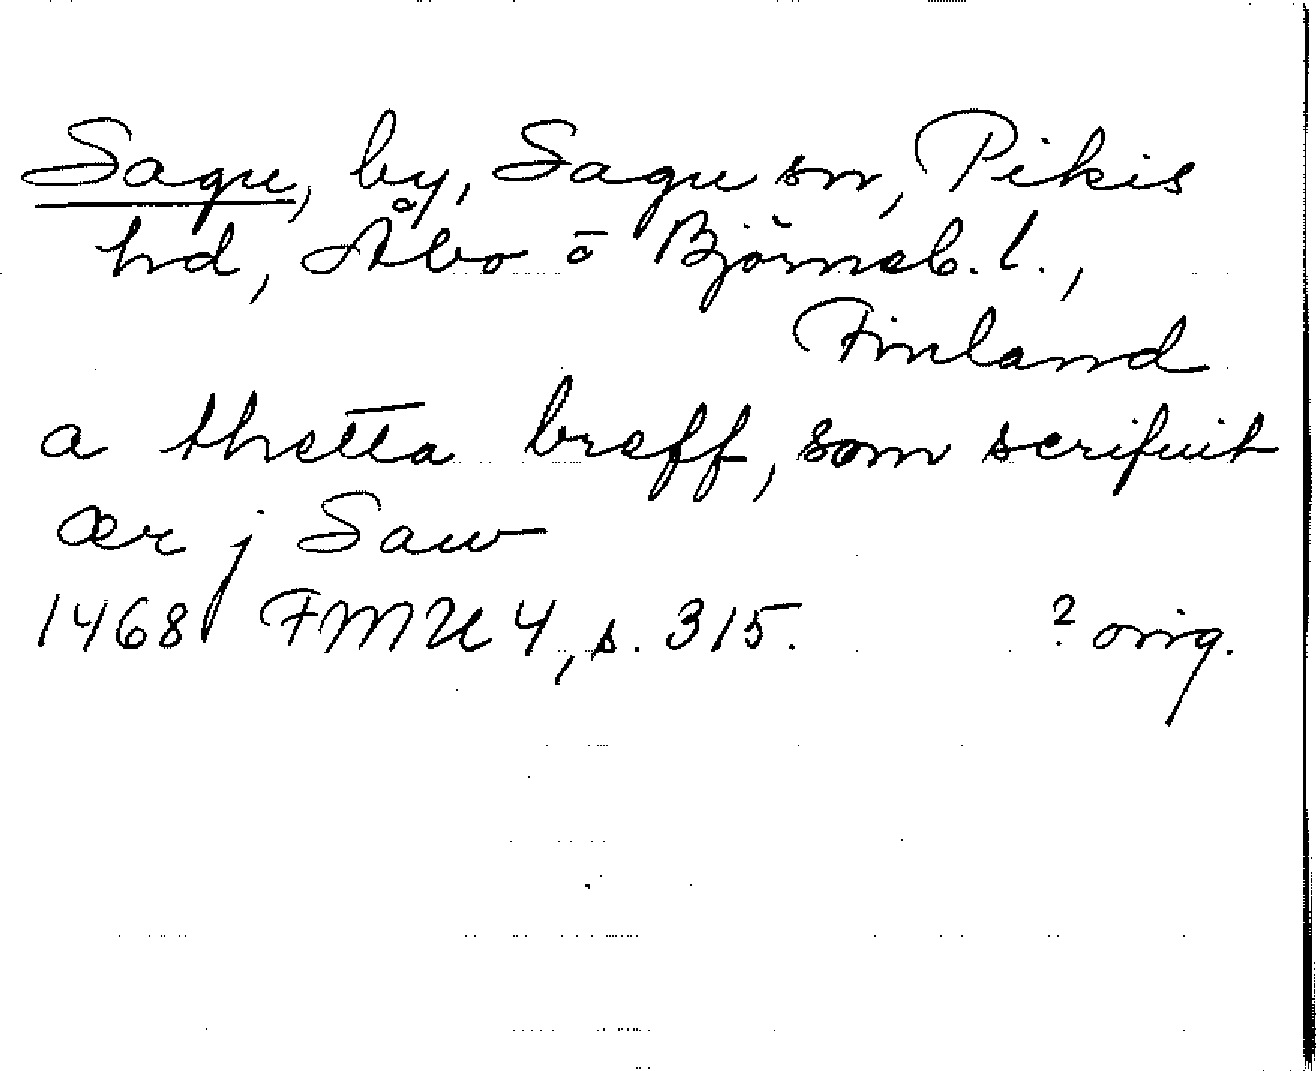 Sagu, by, Sagu sn, Pikis
hd, Åbo o Björneb. l.,
Finland
a thetta breff, som scrifuit
ær j Saw
1468 FMU 4, s. 315. ? orig.